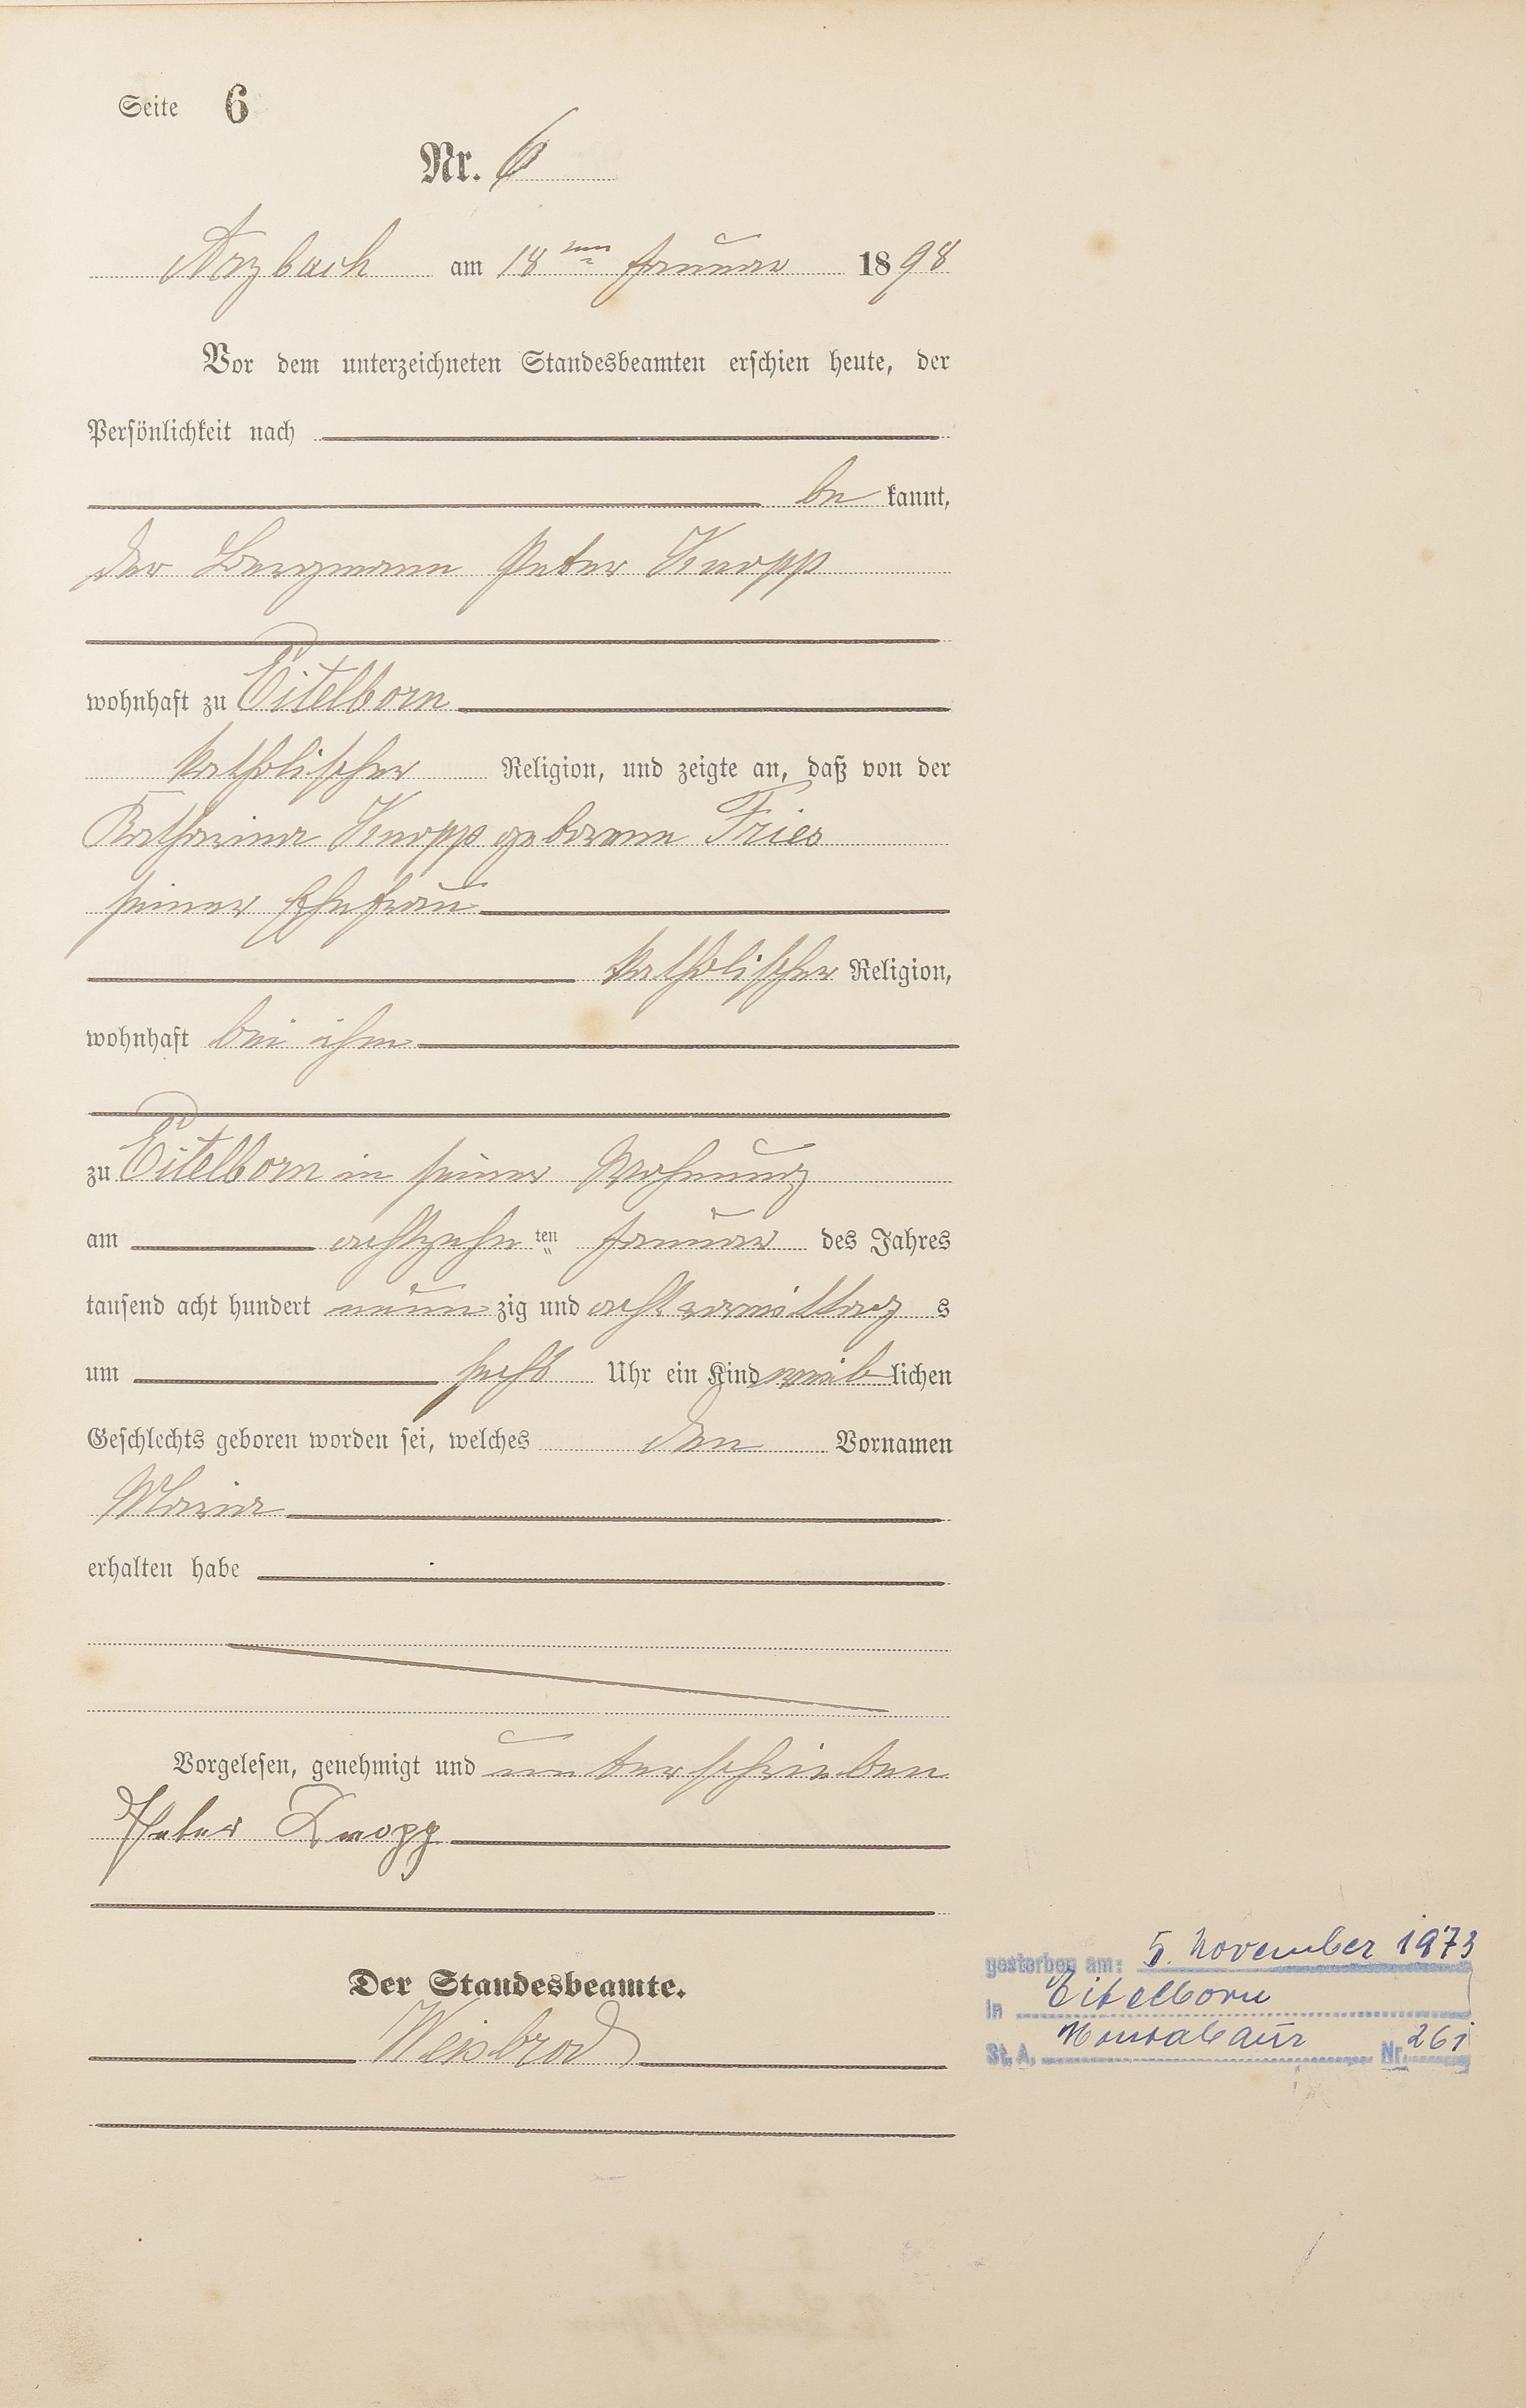 Seite 6
Nr. 6
Arzbach am 18ten Januar 1898
Vor dem unterzeichneten Standesbeamten erschien heute, der
Persönlichkeit nach
be kannt,
der Bergmann Peter Knopp
wohnhaft zu Eitelborn
katholischer Religion, und zeigte an, daß von der
Katharina Knopp geborene Fries
seiner Ehefrau
katholischer Religion,
wohnhaft bei ihm
zu Eitelborn in seiner Wohnung
am achtzehn ten Januar des Jahres
tausend acht hundert neun zig und acht vormittag s
um sechs Uhr ein Kind weib lichen
Geschlechts geboren worden sei, welches den Vornamen
Maria
erhalten habe
Vorgelesen, genehmigt und unterschrieben
Peter Knopp
Der Standesbeamte.
Weisbrod
gestorben am: 5. November 1973
in Eitelborn
St. A. Montabaur Nr. 261